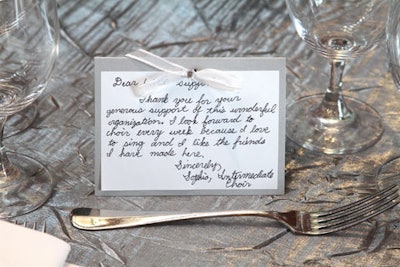 Dear
Thank you for your
generous support of this wonderful
organization. I look forward to
choir every week because I love
to sing and I like the friends
I have made here.
Sincerely,
Sophia, Intermediate
Choir